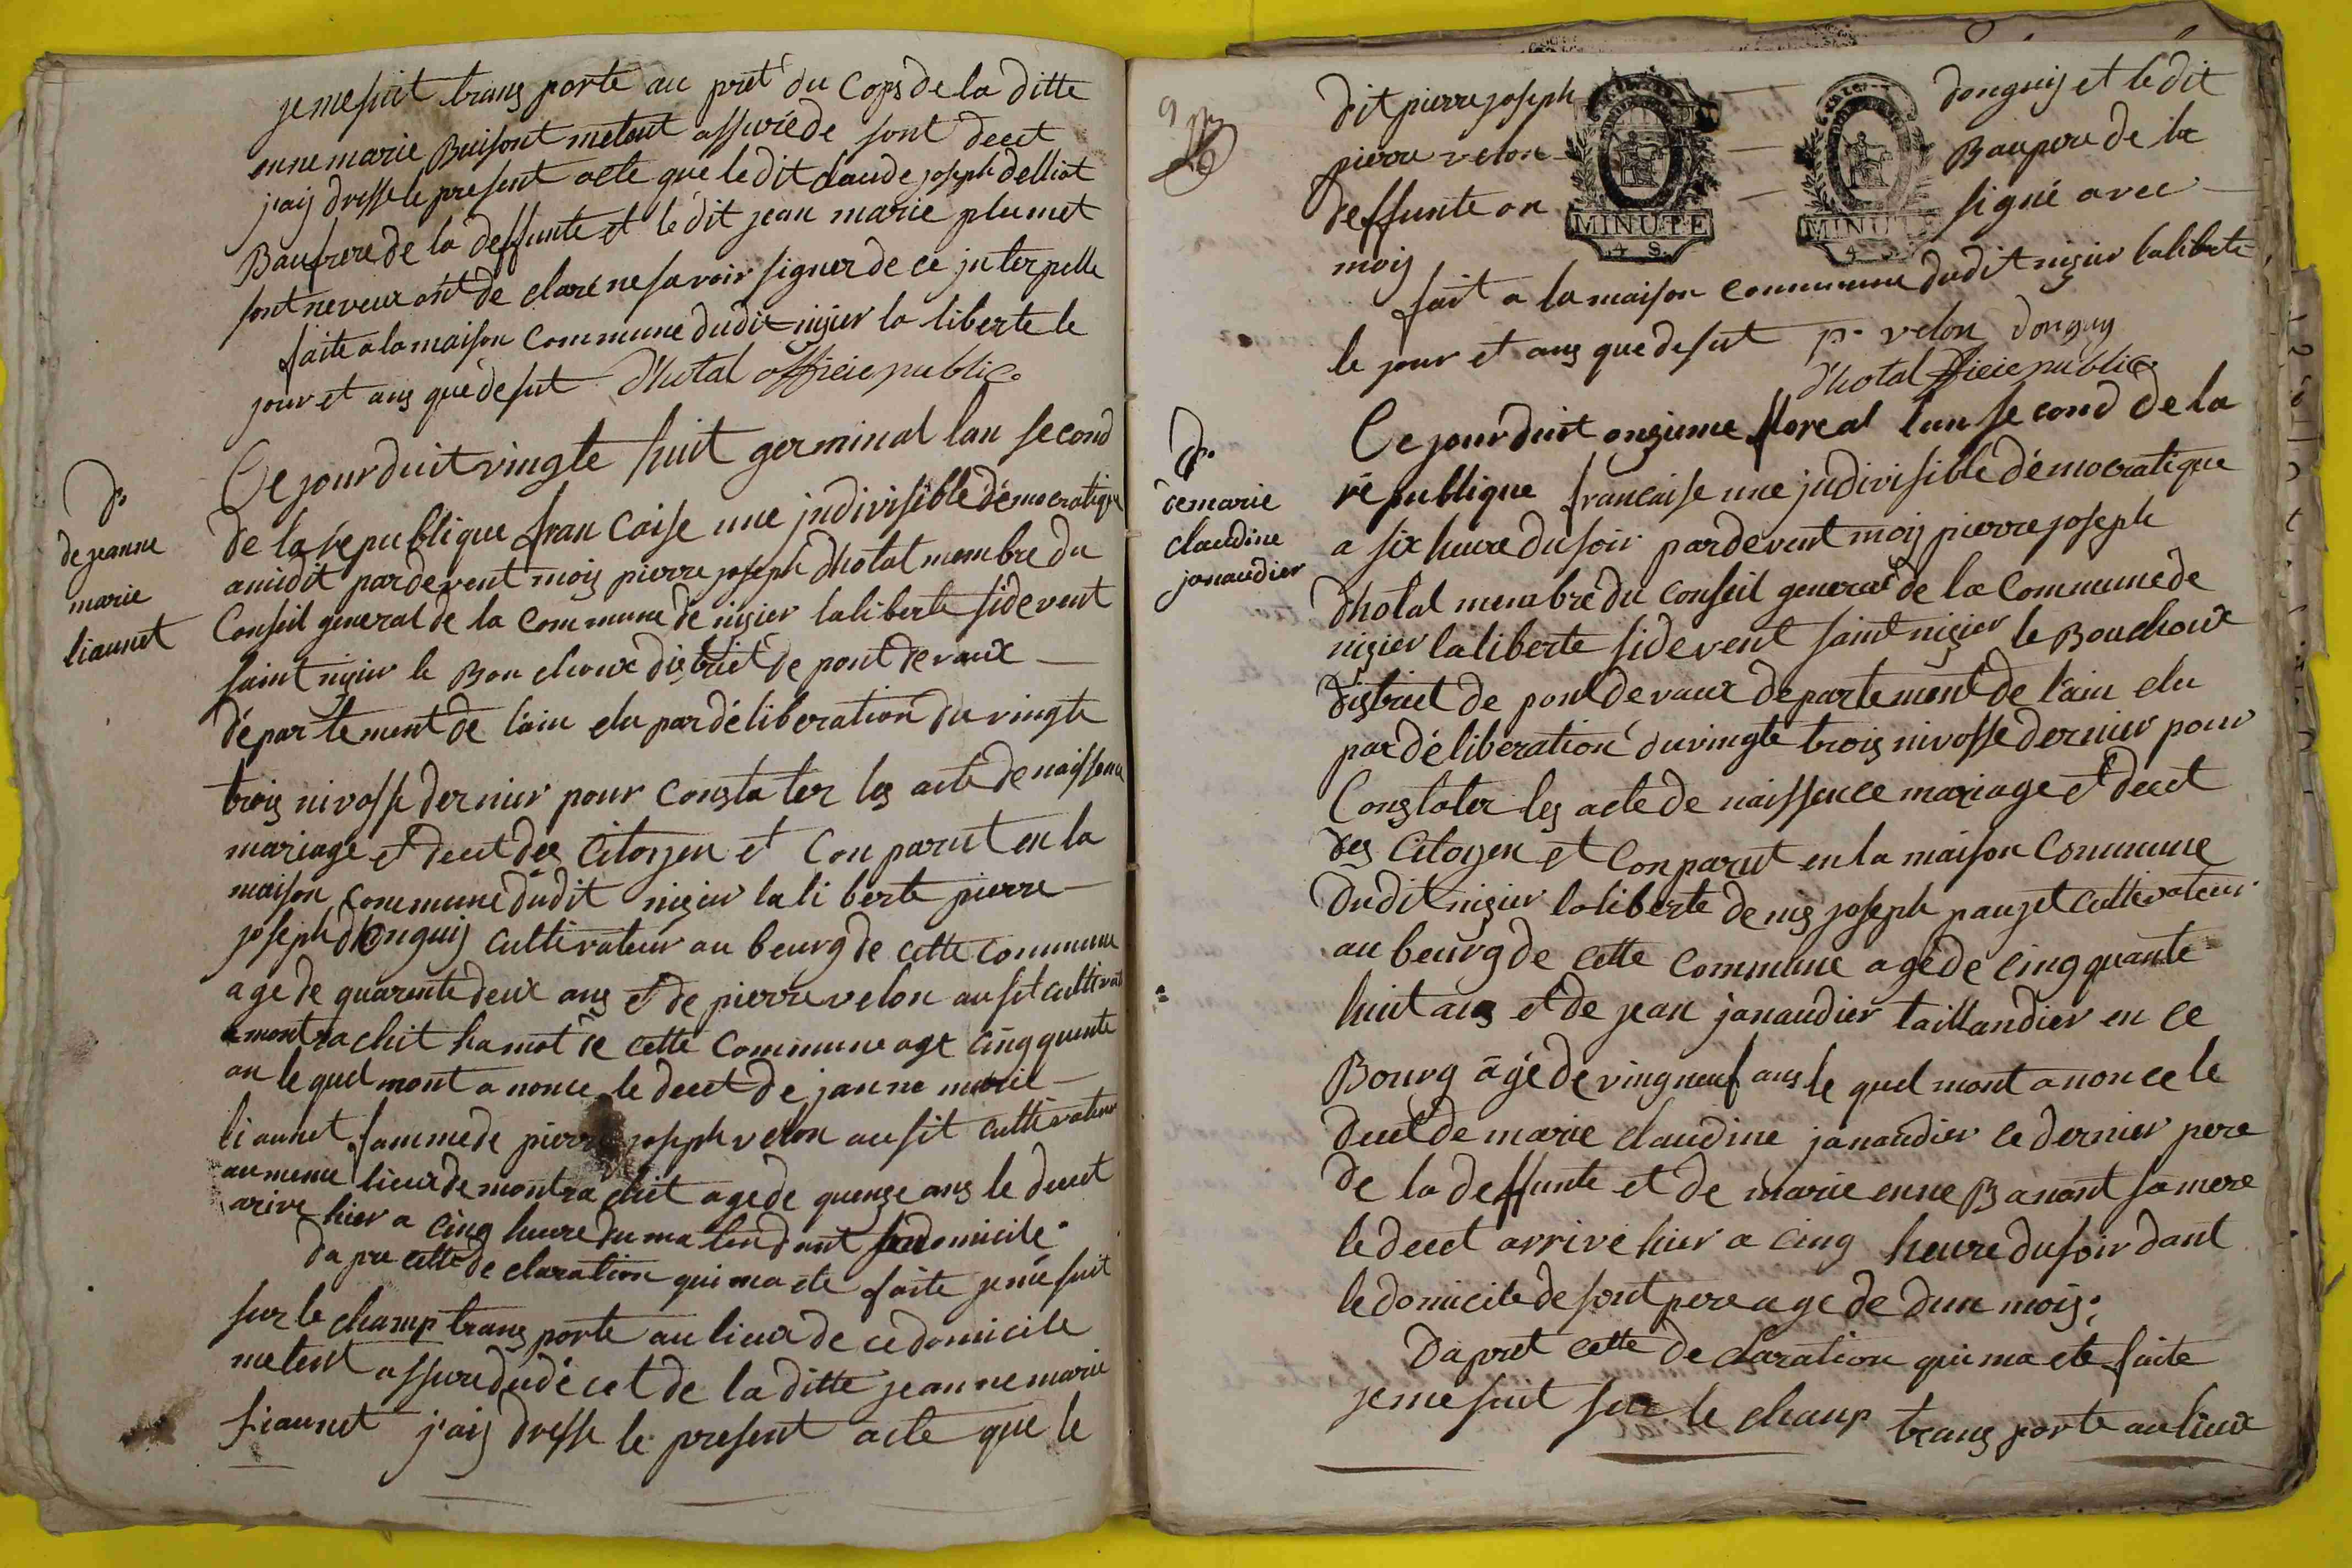 je me suit trans porte au pret du Cops de la ditte
enne marie Buisont metent assuré de sont decet
j'aij dresse le present acte que le dit claude joseph delliat
Baufrere de la deffunte et le dit jean marie plumet
sont neveux ont de claré ne savoir signer de ce jnterpelle
faite a la maison Commune dudit nijier la liberte le
jour et ans que de sut Dhotal officie publice
De
de jeanne
marie
liaunet
Ce jourduit vingte huit germinal lan second
de la république francaise une jndivisible démocratique
amidit pardevent moij pierre joseph Dhotal membre du
Conseil general de la Commune de nizier laliberte sidevent
saint nizier le Bouchoux district de pont de vaux
département de l'ain elu par déliberation du vingte
trois nivosse dernier pour constater les acte de naissence
mariage et decet des Citoyen et Conparut en la
maison commune dudit nizier la li berte pierre
joseph donguij cultivateur au beurg de cette commune
age de quarente deux ans et de pierre velon ausit cultivat
a montrachit hamot de cette Commune age cinqquente
an le quel mont a nonce le decet de janne marie
liaunet famme de pierre joseph velon ausit cultivateur
au meme lieux de montrachit age de quenze ans le decet
arive hier a cinq heure du matin dant son domicile
Da pre cette de claration qui ma ete faite je me suit
sur le champ trans porte au lieux de ce domicile
metent assure du décet de la ditte jeanne marie
liaunet j'aij dresse le present acte que le
9
dit pierre joseph donguij et le dit
pierre velon Baupere de la
deffunte on signé avec
moij
MINUTE
4 S.
MINUTE
4 S.
fait a la maison commune dudit nizier laliberte
le jour et ans que de sut p. velon donguy
Dhotal officie publice
De
de marie
claudine
janaudier
Ce jourduit onzieme floreal l'an second de la
république francaise une jndivisible démocratique
a six heure du soir pardevent moij pierre joseph
Dhotal membre du conseil general de la Commune de
nizier laliberte sidevent saint nizier le Bouchoux
district de pont de vaux departement de l'ain elu
par déliberation du vingte trois nivosse dernier pour
Constater les acte de naissence mariage et decet
des Citoyen et Conparut en la maison Commune
dudit nizier laliberte denis joseph pauget cultivateur
au beurg de cette Commune agé de cinqquante
huit ans et de jean janaudier taillandier en ce
Bourg âgé de vingneuf ans le quel mont anonce le
decet de marie claudine janaudier ce dernier pere
de la deffunte et de marie enne Banant sa mere
le decet arrivé hier a cinq heure du soir dant
le domicile de sont pere age de dun mois;
Da pret cette de claration qui ma ete faite
je me suit sur le champ trans porte au lieux